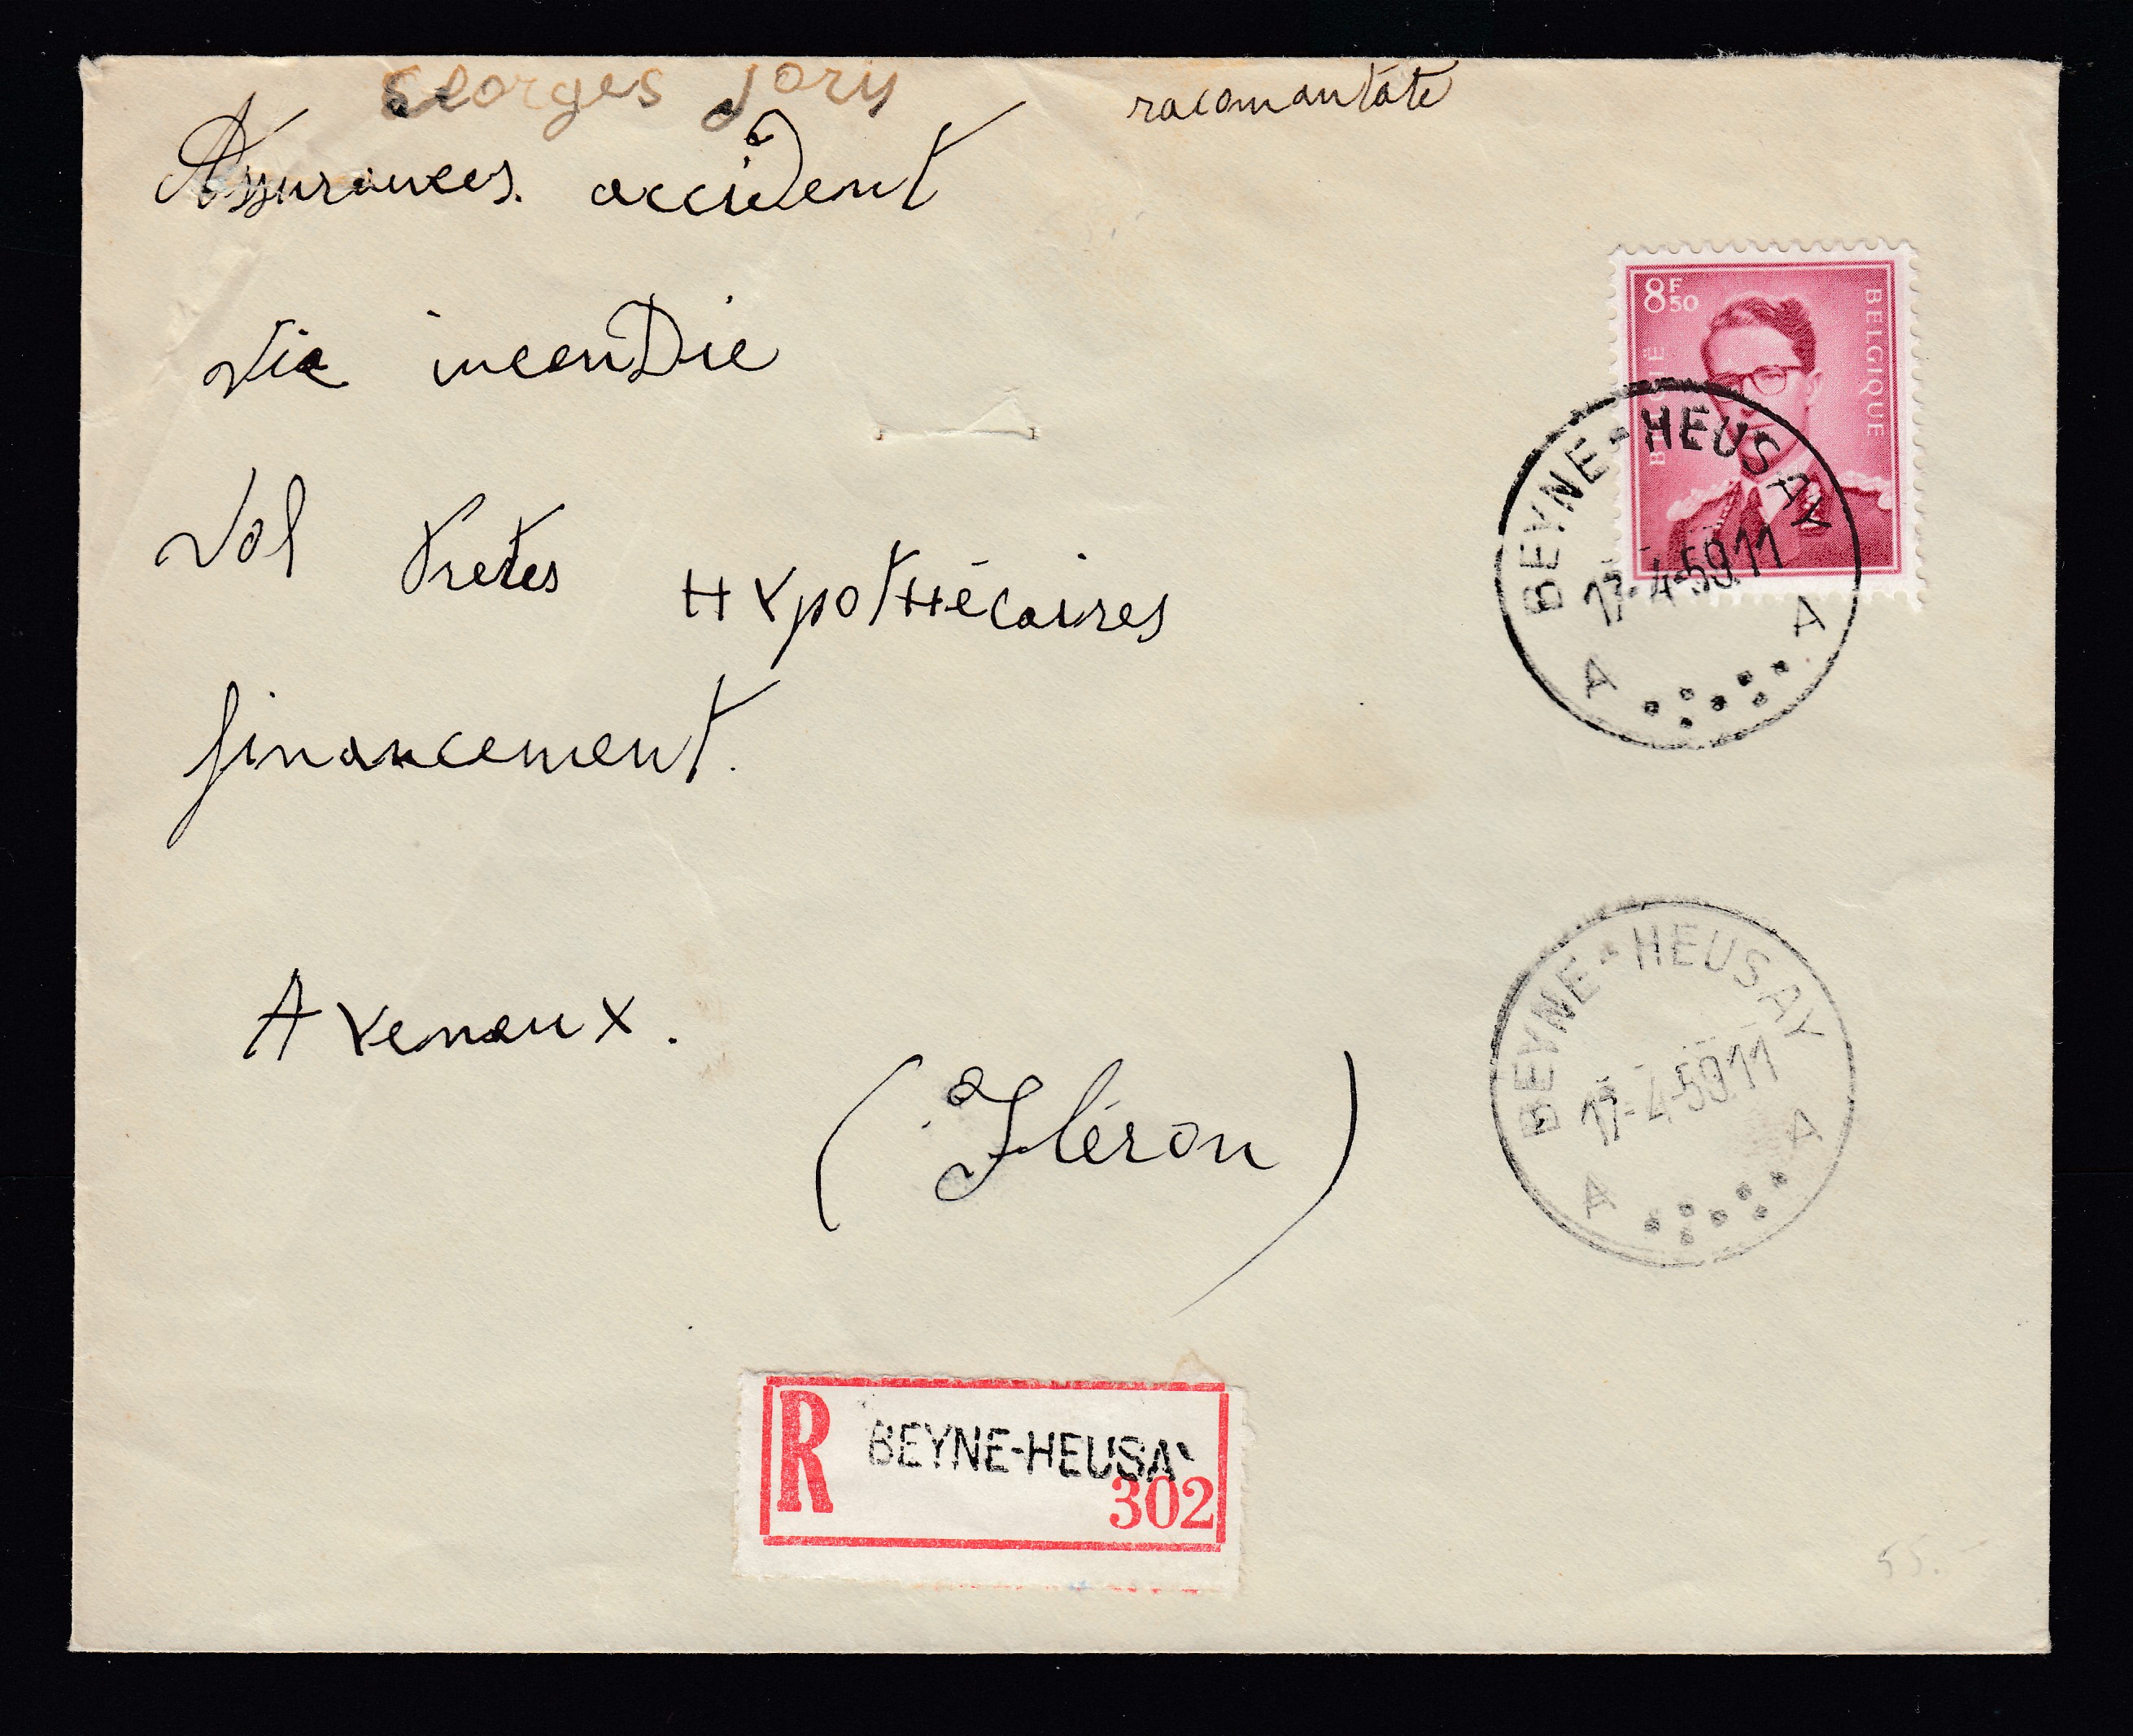 Georges Jory
racomantate
Assurances. accident
Vie incenDie
Vol Pretes HYpotHécaires
financement.
A Venaux.
(Fléron)
8F50
BELGIQUE
BELGIË
BEYNE-HEUSAY
17-4-59.11
A A
BEYNE-HEUSAY
17-4-59.11
A A
R BEYNE-HEUSAY
302